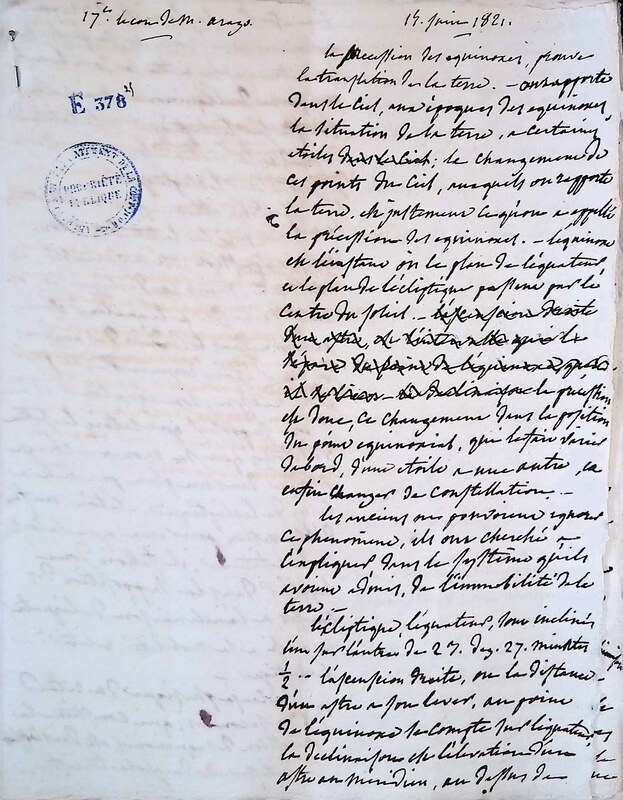 17e. lecon de M. arago.
15. juin 1821.
E 378
PROPRIÉTÉ
PUBLIQUE
la précession des equinoxes, prouve
la translation de la terre. - on rapporte
dans le Ciel, aux époques des equinoxes
la situation de la terre, a certaines
etoiles dans le Ciel; le changement de
ces points du Ciel, auxquels on rapporte
la terre, est justement ce qu'on a appellé
la précession des equinoxes. - l'equinoxe
est l'instant où le plan de l'équateur
et le plan de l'écliptique passent par le
Centre du soleil. - l'ascension droite
d'un astre, est l'intervalle qui le
sépare du point de l'équinoxe, quand
il se lève - la declinaison la précession
est donc, ce changement dans la position
du point equinoxial, qui le fait varier
d'abord, d'une etoile a une autre, et
enfin changer de constellation. -
les anciens ne pouvoient ignorer
ce phénomène, ils ont cherché a
l'expliquer dans le système qu'ils
avoient admis, de l'immobilité de la
terre. -
l'écliptique, l'équateur, sont inclinés
l'un sur l'autre de 23. deg. 27. minutes
1/2 - l'ascension droite, ou la distance
d'un astre a son lever, au point
de l'équinoxe se compte sur l'équateur
la declinaison est l'élévation d'un
astre au méridien, au dessus de